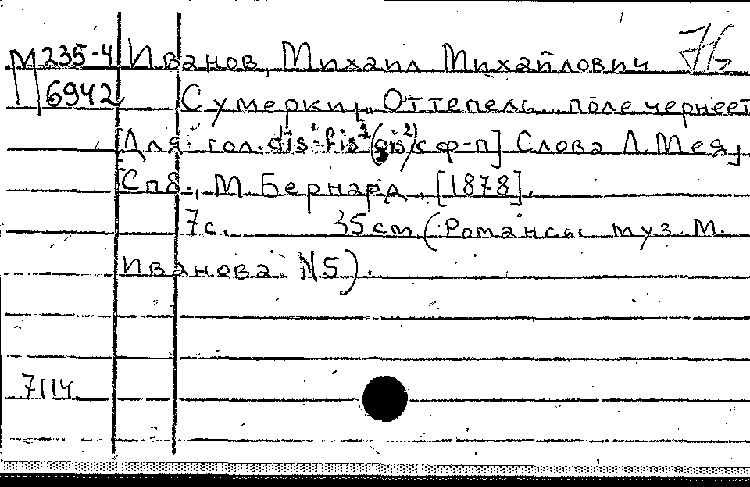 М 235-4 Иванов, Михаил Михайлович
6942 Сумерки. Оттепель... поле чернеет
[Для гол. dis¹-fis²(gis²) с ф-п] Слова Л. Мея,
Спб., М. Бернард, [1878].
7с. 35 cm. (Романсы муз. М.
Иванова. N5).
7114